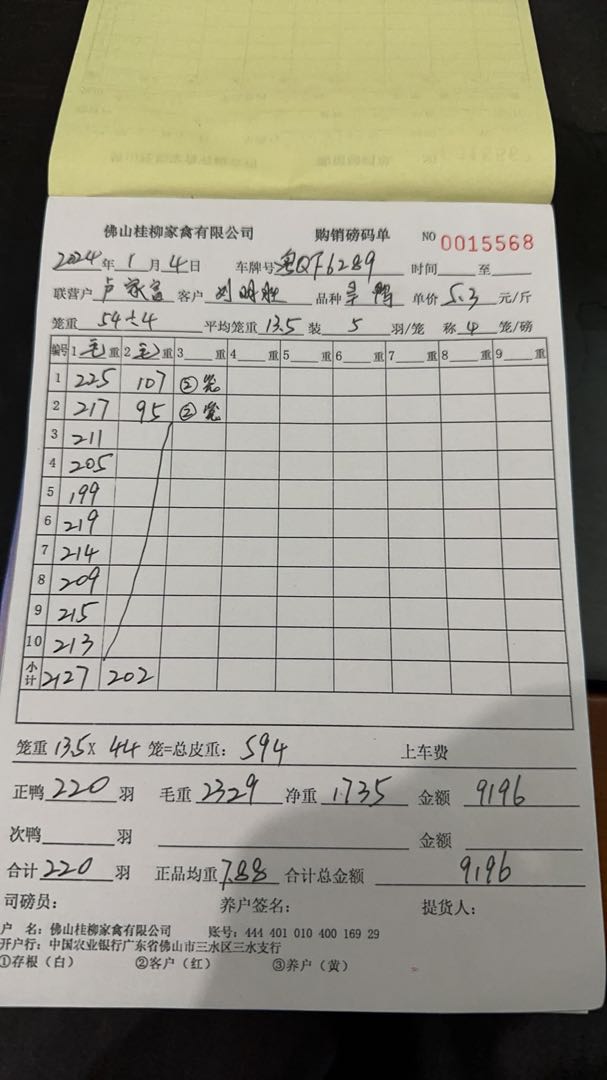 佛山桂柳家禽有限公司 购销磅码单 NO 0015568
2024年1月4日 车牌号粤QF6289 时间 至
联营户 卢家富 客户 刘明胜 品种 旱鸭 单价 5.3 元/斤
笼重 54÷4 平均笼重 13.5 装 5 羽/笼 称 4 笼/磅
编号 1毛重 2毛重 3 重 4 重 5 重 6 重 7 重 8 重 9 重
1 225 107 ②笼
2 217 95 ②笼
3 211
4 205
5 199
6 219
7 214
8 209
9 215
10 213
小计 2127 202
笼重 13.5 X 44 笼=总皮重: 594 上车费
正鸭 220 羽 毛重 2329 净重 1735 金额 9196
次鸭 羽 金额
合计 220 羽 正品均重 7.88 合计总金额 9196
司磅员: 养户签名: 提货人:
户 名: 佛山桂柳家禽有限公司 账号: 444 401 010 400 169 29
开户行: 中国农业银行广东省佛山市三水区三水支行
①存根(白) ②客户(红) ③养户(黄)